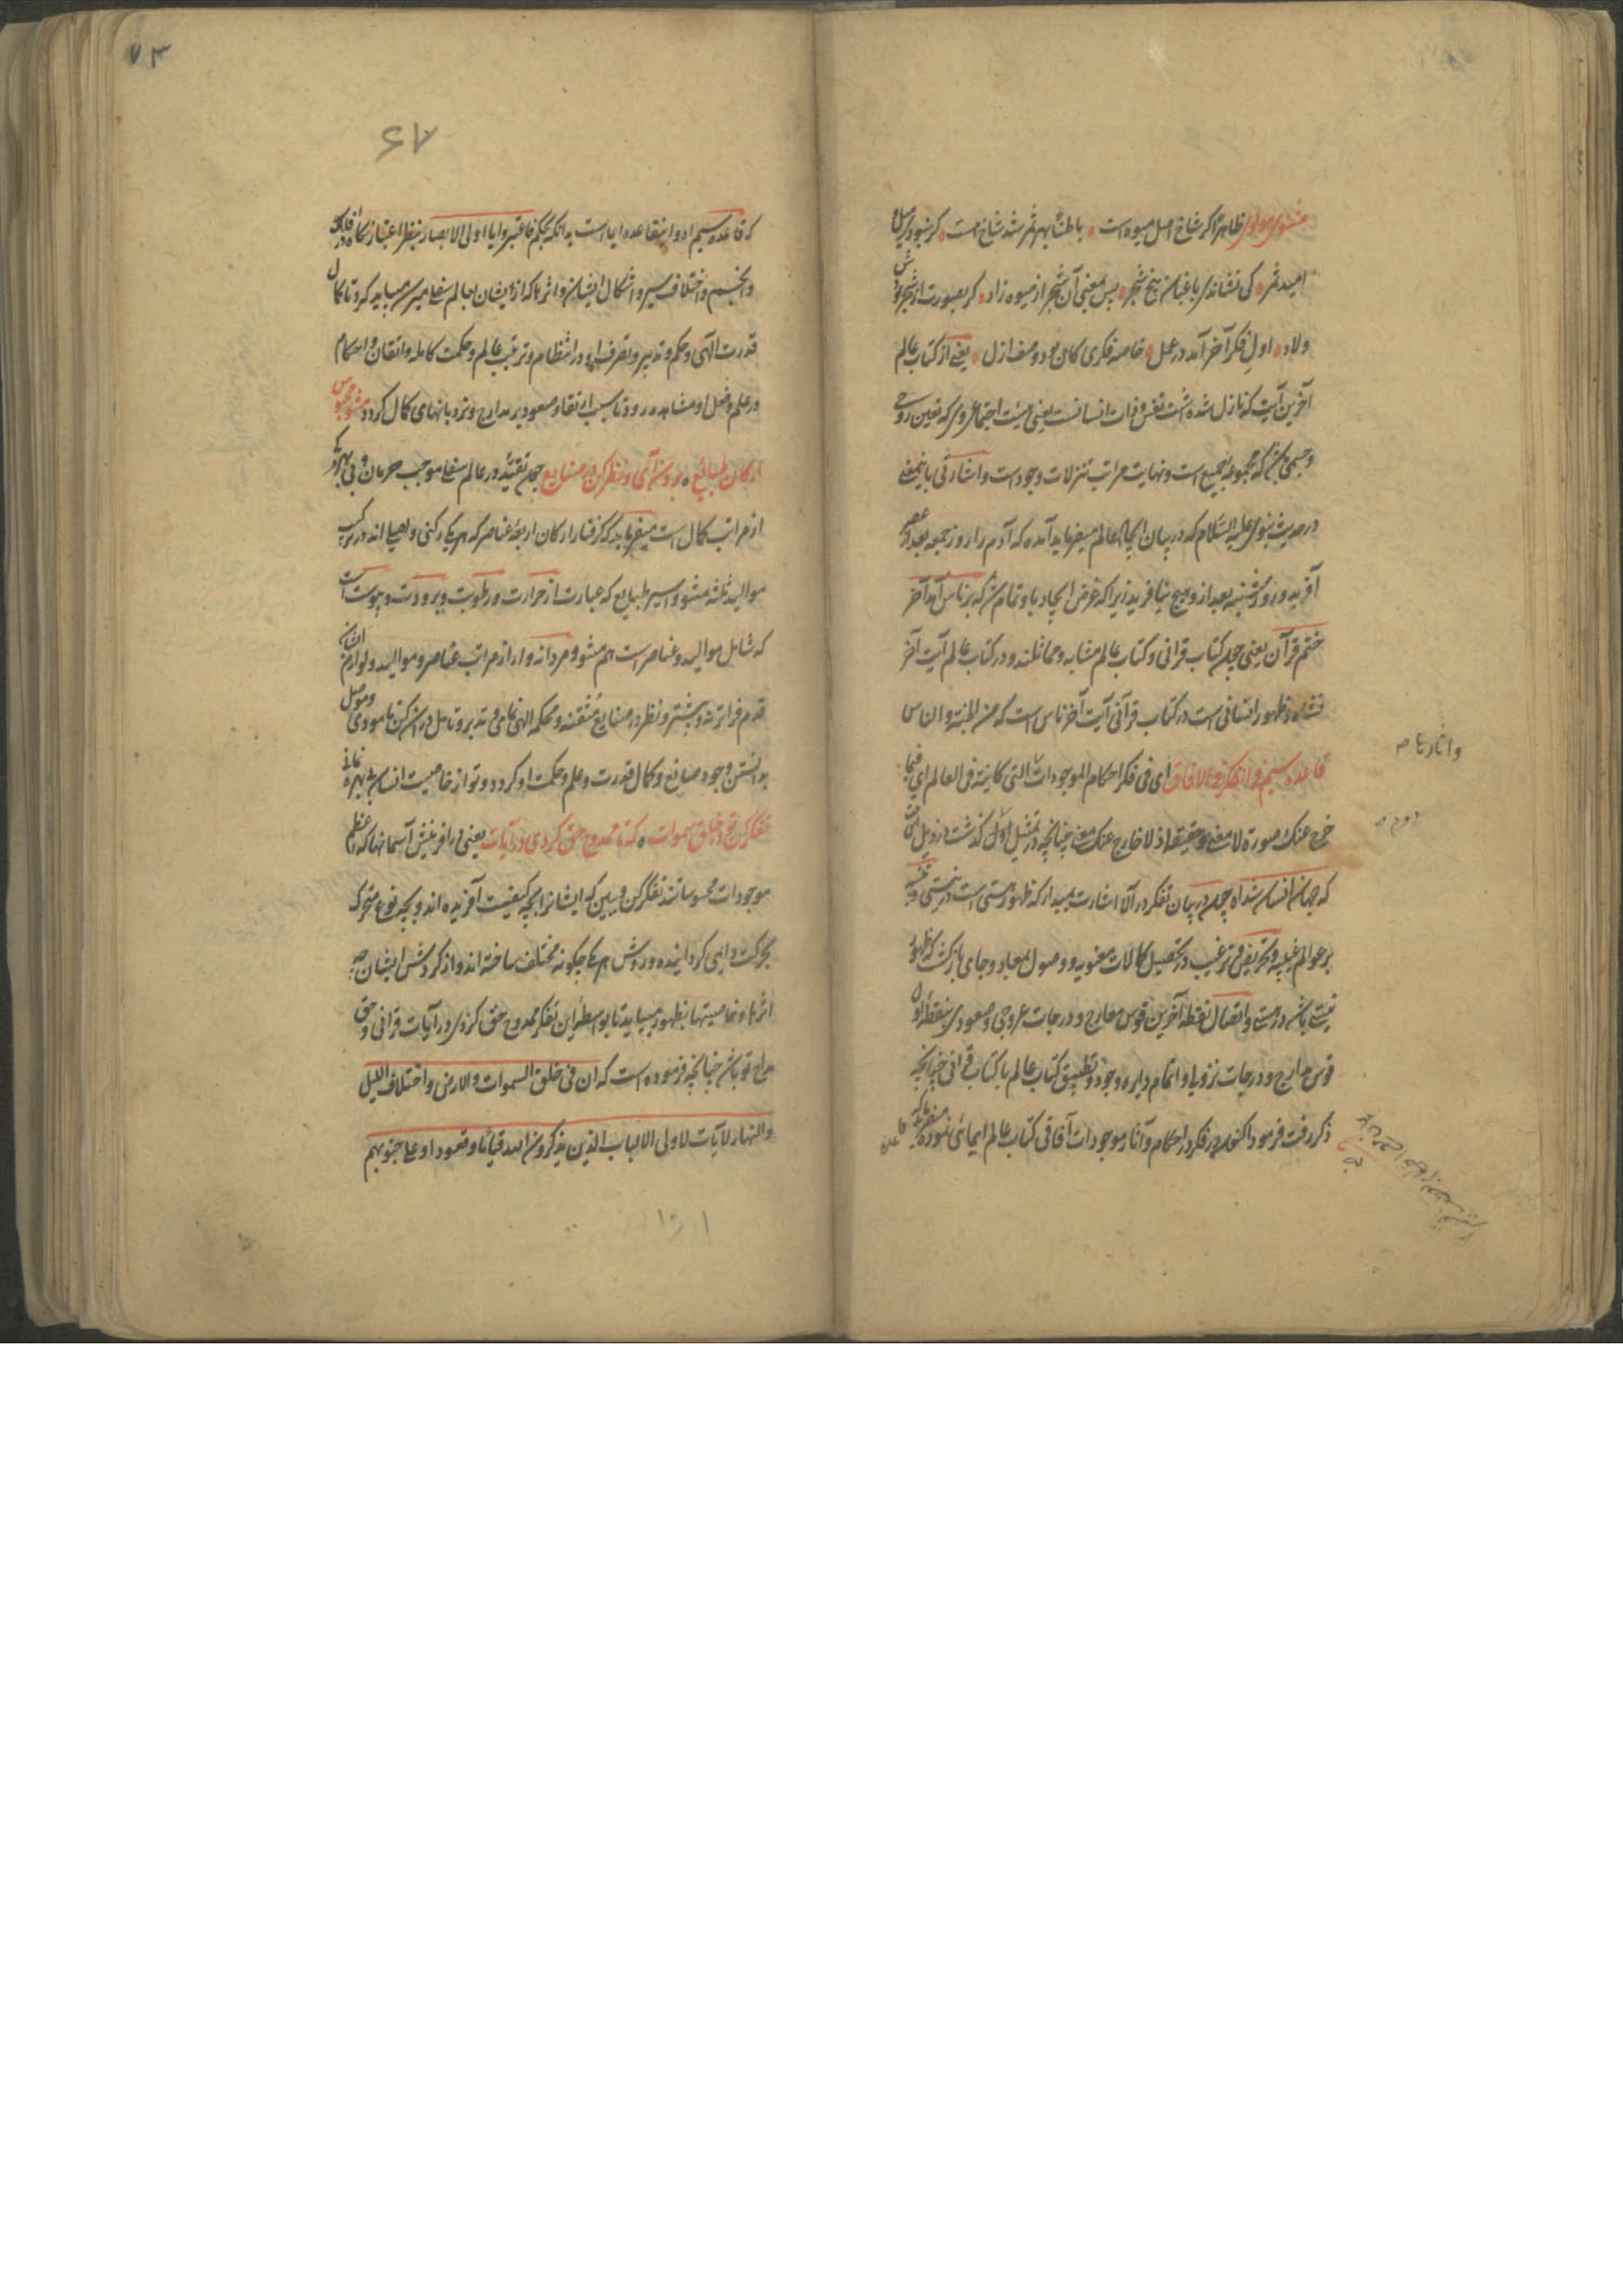 مثنوی مولوی ظاهرا کر شاخ اصل میوه است باطنا بهر ثمر شد شاخ هست کر نبودی میل و
امید ثمر کی نشاندی باغبان بیخ شجر پس بمعنی آن شجر از میوه زاد کر بصورت از شجر بودش
ولاد اول فکر آخر آمد در عمل خاصه فکری کان بود وصف ازل یعنی از کتاب عالم
آخرین آیت که نازل شده است نفس و ذات انسانست یعنی هیئت اجتماعی که تعین روحی
و جسمی که مجموعه جمیع است و نهایت مراتب تنزلات وجود است و اشارتی باینمعنی
در حدیث نبوی علیه السلام که در بیان ایجاد عالم میفرماید آمده که آدم را روز جمعه بعد از عصر
آفرید و روز شنبه بعد از و هیچ نیافرید زیرا که غرض ایجاد باو تمام شد که بر ناس آمد آخر
ختم قرآن یعنی چون کتاب قرانی و کتاب عالم مشابه و مماثلند و در کتاب عالم آیت آخر
نشاه و ظهور انسانی است در کتاب قرآنی آیت آخر ناس است که من الجنة و الناس
قاعده سیم فی التفکر فی الافاق ای فی فکر احکام الموجودات التی کاینة فی العالم ای فیما
خرج عنک صورة لا معنی و حقیقة اذ لا خارج عنک معنی چنانچه در تمثیل اول کذشت در ذیل
که جهان انسان شد او چون در بیان تفکر در آلا اشارت
بر عوالم غیبیه و تحریض و ترغیب در تحصیل کمالات معنویه و وصول معاد و جای بازکشت که ظهور
نیستی باشد در هستی و اتصال نقطه آخرین قوس معارج و درجات عروجی و صعودی بنقطه اول
قوس مدارج و درجات نزولیا و اتمام دایره وجود و تطبیق کتاب عالم با کتاب قرانی چنانچه
ذکر رفت فرمود اکنون در فکر در احکام و آثار موجودات آفاقی کتاب عالم ایمائی نموده میفرماید که
قاعده
و آثارها
که قاعده سیم او و اینقاعده ایما است به آنکه بحکم فاعتبروا یا اولی الابصار بنظر اعتبار نکاه در افلاک
و انجم و اختلاف سیر و اشکال ایشان و اثرها که از ایشان بعالم سفلی میرسد میباید کرد تا کمال
قدرت الهی و حکم و تدبیر و تصرف او در انتظام و ترتیب عالم و حکمت کامله و اتقان و احکام
در علم و فعل او مشاهده رود تا سبب ارتقا و صعود بر مدارج و نردبانهای کمال کردد مشو محبوس
ارکان و طبایع برون آی و نظر کن در صنایع چون تقید در عالم سفلی موجب حرمان و بی بهرکی
از مراتب کمال است میفرماید که کرفتار ارکان اربعه عناصر که هر یک رکنی و اصلی اند در ترکیب
موالید ثلثه مشو و اسیر طبایع که عبارت از حرارت و رطوبت و برودت و یبوست است
که شامل موالید و عناصر است هم مشو و مردانه وار از مراتب عناصر و موالید و لوازم ایشان
قدم فراتر نه و پیشتر و نظر در صنایع متقنه و محکمه الهی نمای و تدبر و تامل در آن کن تا مودی و موصل
بدانستن وجود صانع و کمال قدرت و علم و حکمت او کردد و تو از خاصیت انسان بی بهره نمانی
تفکر کن تو در خلق سموات که تا ممدوح حق کردی در آیات یعنی در افرینش آسمانها که اعظم
موجودات محسوساتند تفکر کن و ببین که ایشانرا بچه کیفیت آفریده اند و بچه نوع متحرک
بحرکت دایمی کردانیده و روش هر یک چکونه مختلف ساخته اند و از کردش ایشان چه
اثرها و خاصیتها بظهور میآید تا بواسطه این تفکر ممدوح حق کردی در آیات قرانی و حق
مداح تو باشد چنانچه فرموده است که ان فی خلق السموات والارض و اختلاف اللیل
والنهار لآیات لاولی الالباب الذین یذکرون الله قیاما و قعودا و علی جنوبهم
۷۳
۶۷